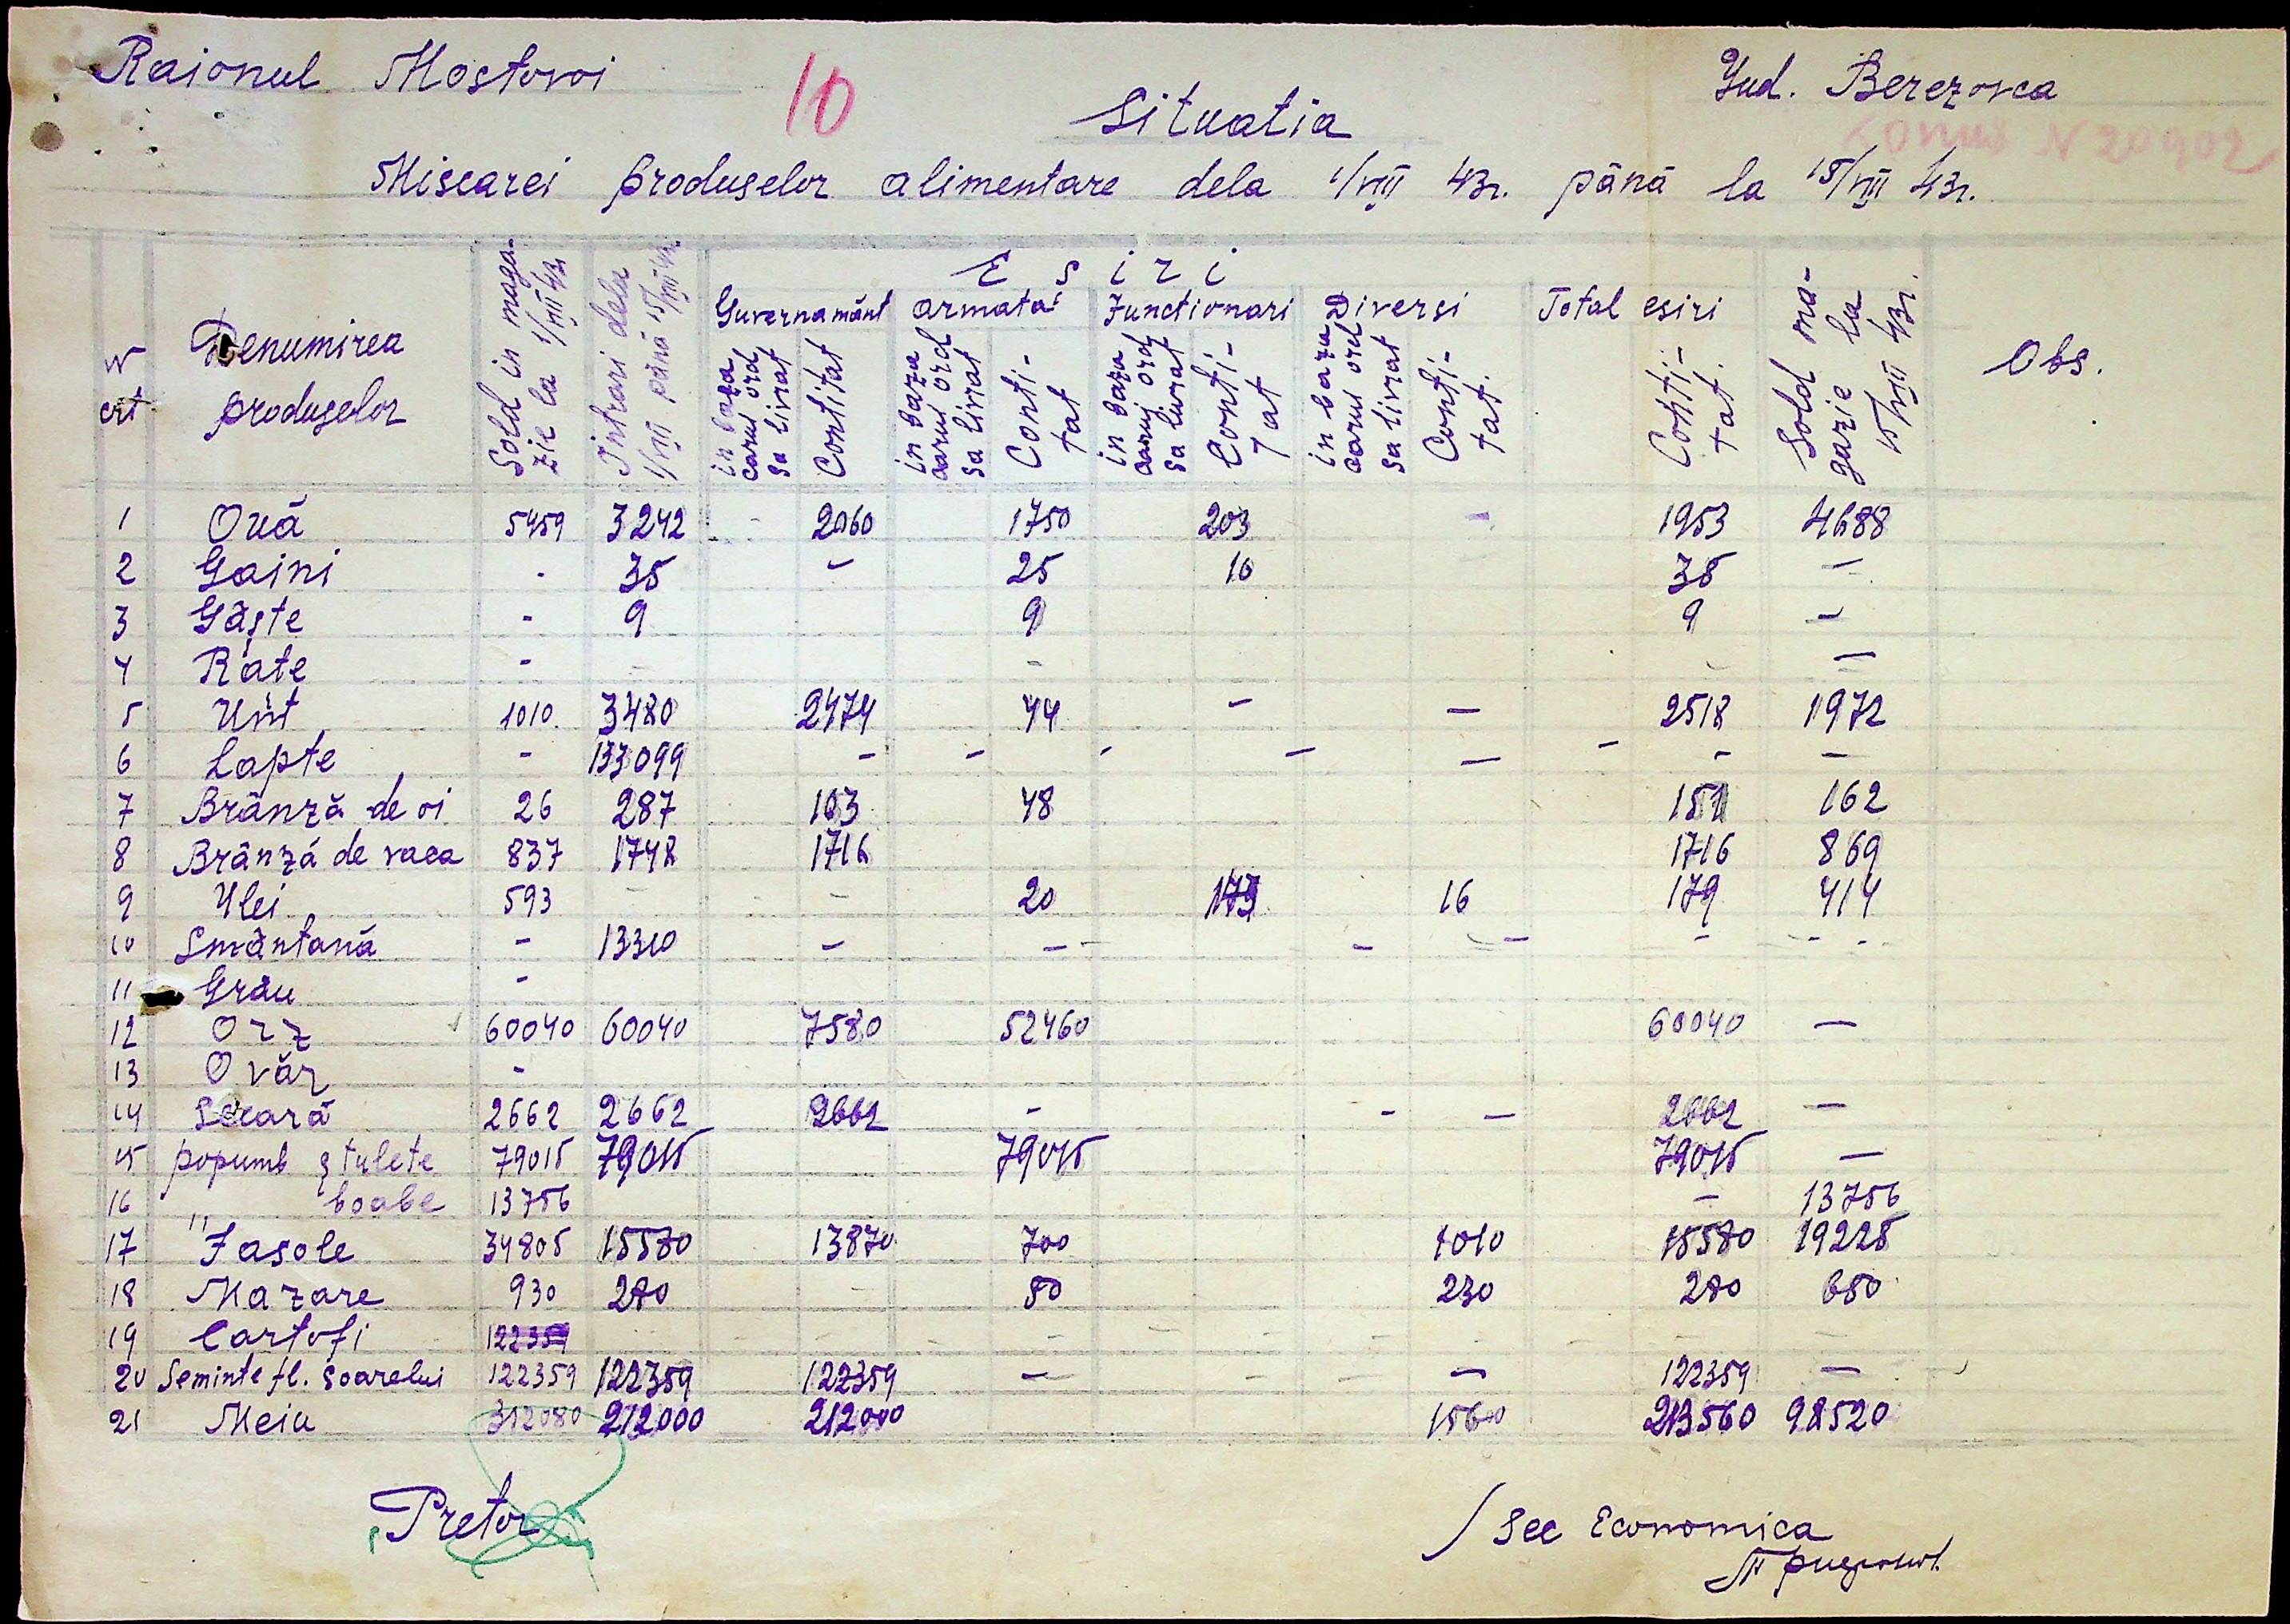 Raionul Mostovoi
10
Jud. Berezovca
Situatia
N 20902
Miscarei produselor alimentare dela 1/VIII 43r. până la 15/VIII 43r.
N crt
Denumirea produselor
Sold in magazie la 1/VIII 43
Intrari dela 1/VIII până 15/VIII 43
Esiri
Guvernamânt
in baza carui ord sa livrat
Contitat
armata
in baza carui ord sa livrat
Contitat
Functionari
in baza carui ord sa livrat
Contitat
Diversi
in baza carui ord sa livrat
Contitat.
Total esiri
Contitat.
Sold magazie la 15/VIII 43r.
Obs.
1 Ouă 5459 3242 - 2060 1750 203 - 1953 4688
2 Gaini - 35 - 25 10 35 -
3 Gâște - 9 9 9 -
4 Rate - - - - -
5 Unt 1010 3480 2474 44 - - 2518 1972
6 Lapte - 133099 - - - - - - - -
7 Brânză de oi 26 287 103 48 151 162
8 Brânză de vaca 837 1748 1716 1716 869
9 Ulei 593 - - 20 143 16 179 414
10 Smântană - 13310 - - - - - -
11 Grău -
12 Orz 60040 60040 7580 52460 60040 -
13 Ovăz -
14 Secară 2662 2662 2662 - - - 2662 -
15 popumb știlete 79015 79015 79015 79015 -
16 " boabe 13756 - 13756
17 Fasole 34805 15580 13870 700 1010 15580 19225
18 Mazare 930 280 - 50 230 280 650
19 Cartofi 122359 - - - - - - - - -
20 Seminte fl. Soarelui 122359 122359 122359 - - - - 122359 -
21 Meiu 312080 212000 212000 1560 213560 98520
Pretor
/ Sec Economica